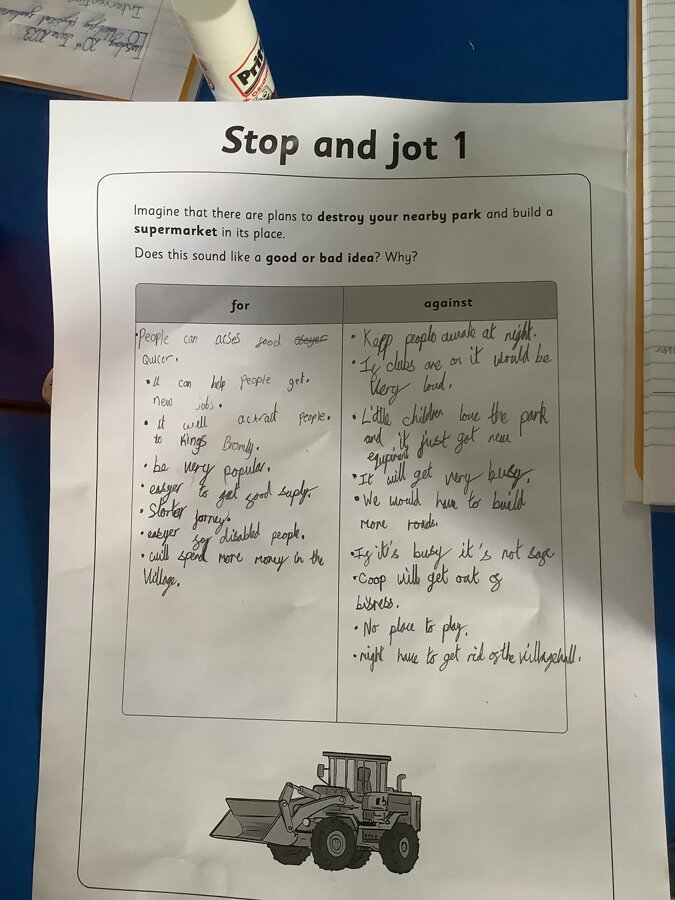 Tuesday 20th June 2023
Prit
Stop and jot 1
Imagine that there are plans to destroy your nearby park and build a
supermarket in its place.
Does this sound like a good or bad idea? Why?
for
• People can acses food
Quicer.
• it can help people get.
new jobs.
• it will actract people.
to Kings Bromly.
• be very popular.
• easyer to get food suply.
• Storter jorney.
• easyer for disabled people.
• will spend more money in the
Village.
against
• Kepp people awake at night.
• If clubs are on it would be
Very loud.
• Little children love the park
and it just got new
equipment
• It will get very busy.
• We would have to build
more roads.
• If it's busy it's not safe
• Coop will get out of
bisness.
• No place to play.
• might have to get rid of the village hall.